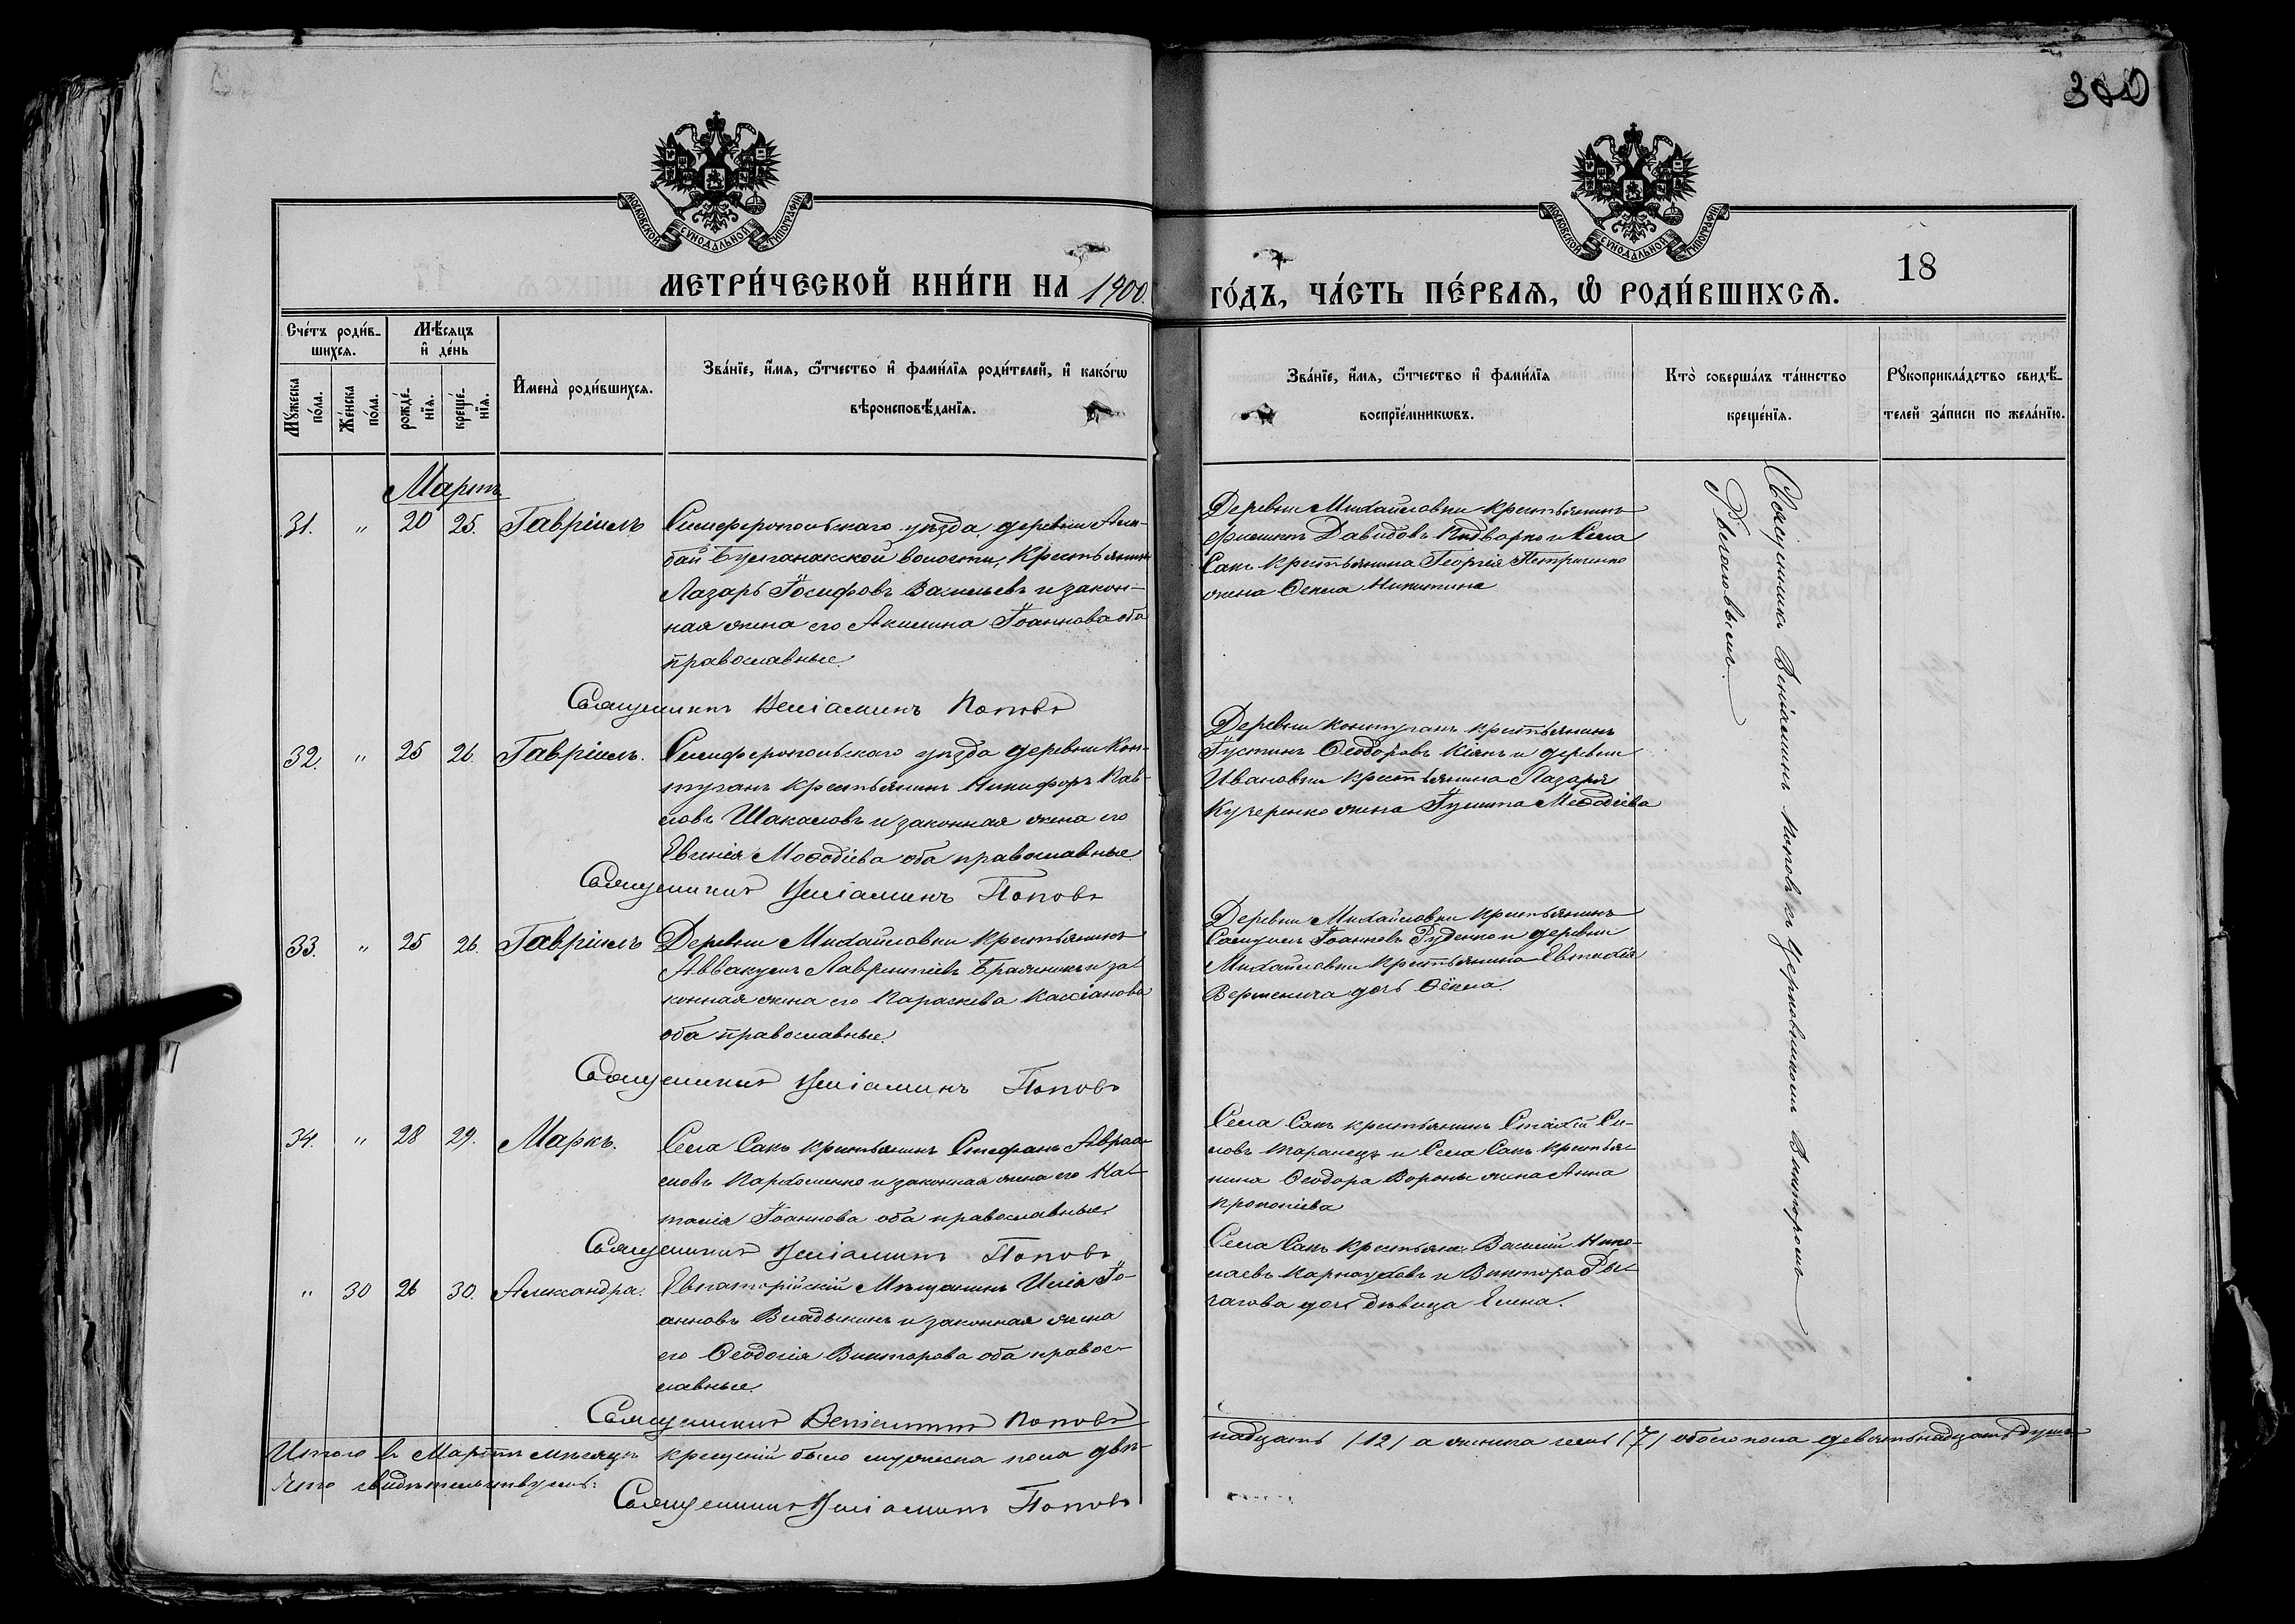 300
МОСКОВСКОЙ СѴНОДАЛЬНОЙ ТИПОГРАФІИ
МОСКОВСКОЙ СѴНОДАЛЬНОЙ ТИПОГРАФІИ
МЕТРИ́ЧЕСКОЙ КНИ́ГИ НА 1900.
ГО́ДЪ, ЧА́СТЬ ПЕ́РВАѦ, Ѽ РОДИ́ВШИХСѦ.
18
Сче́тъ роди́в-
шихсѧ.
Мѣ́сѧцъ
и҆ де́нь
Мꙋ́жеска
по́ла.
Же́нска
по́ла.
рожде́-
нїѧ.
креще́-
нїѧ.
И҆мена̀ роди́вшихсѧ.
Зва́нїе, и҆́мѧ, ѻ҆́тчество и҆ фами́лїѧ роди́телей, и҆ како́гѡ
вѣроисповѣ́данїѧ.
Зва́нїе, и҆́мѧ, ѻ҆́тчество и҆ фами́лїѧ
воспрїе́мникѡвъ.
Кто̀ соверша́лъ та́инство
креще́нїѧ.
Рꙋкоприкла́дство свидѣ́-
телей за́писи по жела́нїю.
Мартъ
31. " 20 25. Гавріилъ
Симферопольскаго уѣзда, деревни Аша-
бай Булганакской волости, крестьянинъ
Лазарь Іосифовъ Васильевъ и закон-
ная жена его Акилина Іоаннова оба
православные.
Священникъ Веніаминъ Поповъ
Деревни Михайловки крестьянинъ
Филиппъ Давидовъ Подворко и Села
Сакъ крестьянина Георгія Петриченко
жена Ѳекла Никитина
Священникъ Веніаминъ Поповъ съ Церковникомъ Викторомъ
Рычаговымъ.
32. " 25 26. Гавріилъ.
Симферопольскаго уѣзда деревни Кон-
туганъ крестьянинъ Никифоръ Пав-
ловъ Шакаловъ и законная жена его
Евгенія Меѳодіева оба православные
Священникъ Веніаминъ Поповъ
Деревни Контуганъ крестьянинъ
Іустинъ Ѳеодоровъ Кіянъ и деревни
Ивановки крестьянина Лазаря
Кучеренко жена Іулитта Меѳодіева
33. " 25 26. Гавріилъ
Деревни Михайловки крестьянинъ
Аввакумъ Лаврентіевъ Бражникъ и за-
конная жена его Параскева Кассіанова
оба православные.
Священникъ Веніаминъ Поповъ
Деревни Михайловки крестьянинъ
Самуилъ Іоанновъ Руденко и деревни
Михайловки крестьянина Евтихія
дочь Ѳекла.
34. " 28 29. Маркъ.
Села Сакъ крестьянинъ Стефанъ Авраа-
мовъ Пархоменко и законная жена его На-
талія Іоаннова оба православные.
Священникъ Веніаминъ Поповъ
Села Сакъ крестьянинъ Стахій Си-
ловъ Таранецъ и Села Сакъ крестья-
нина Ѳеодора Вороны жена Анна
Прокопіева
" 30 26 30. Александра.
Евпаторійскій Мѣщанинъ Илія Іо-
анновъ Владыкинъ и законная жена
его Ѳеодосія Викторова оба правос-
лавные.
Священникъ Веніаминъ Поповъ
Села Сакъ крестьяне: Василій Нико-
лаевъ Карнауховъ и Виктора Ры-
чагова дочь дѣвица Елена.
Итого въ Мартѣ мѣсяцѣ крещеній было мужеска пола двѣ-
надцать (12) а женска семь (7) обоего пола девятьнадцать душъ
Что свидѣтельствуемъ:
Священникъ Веніаминъ Поповъ